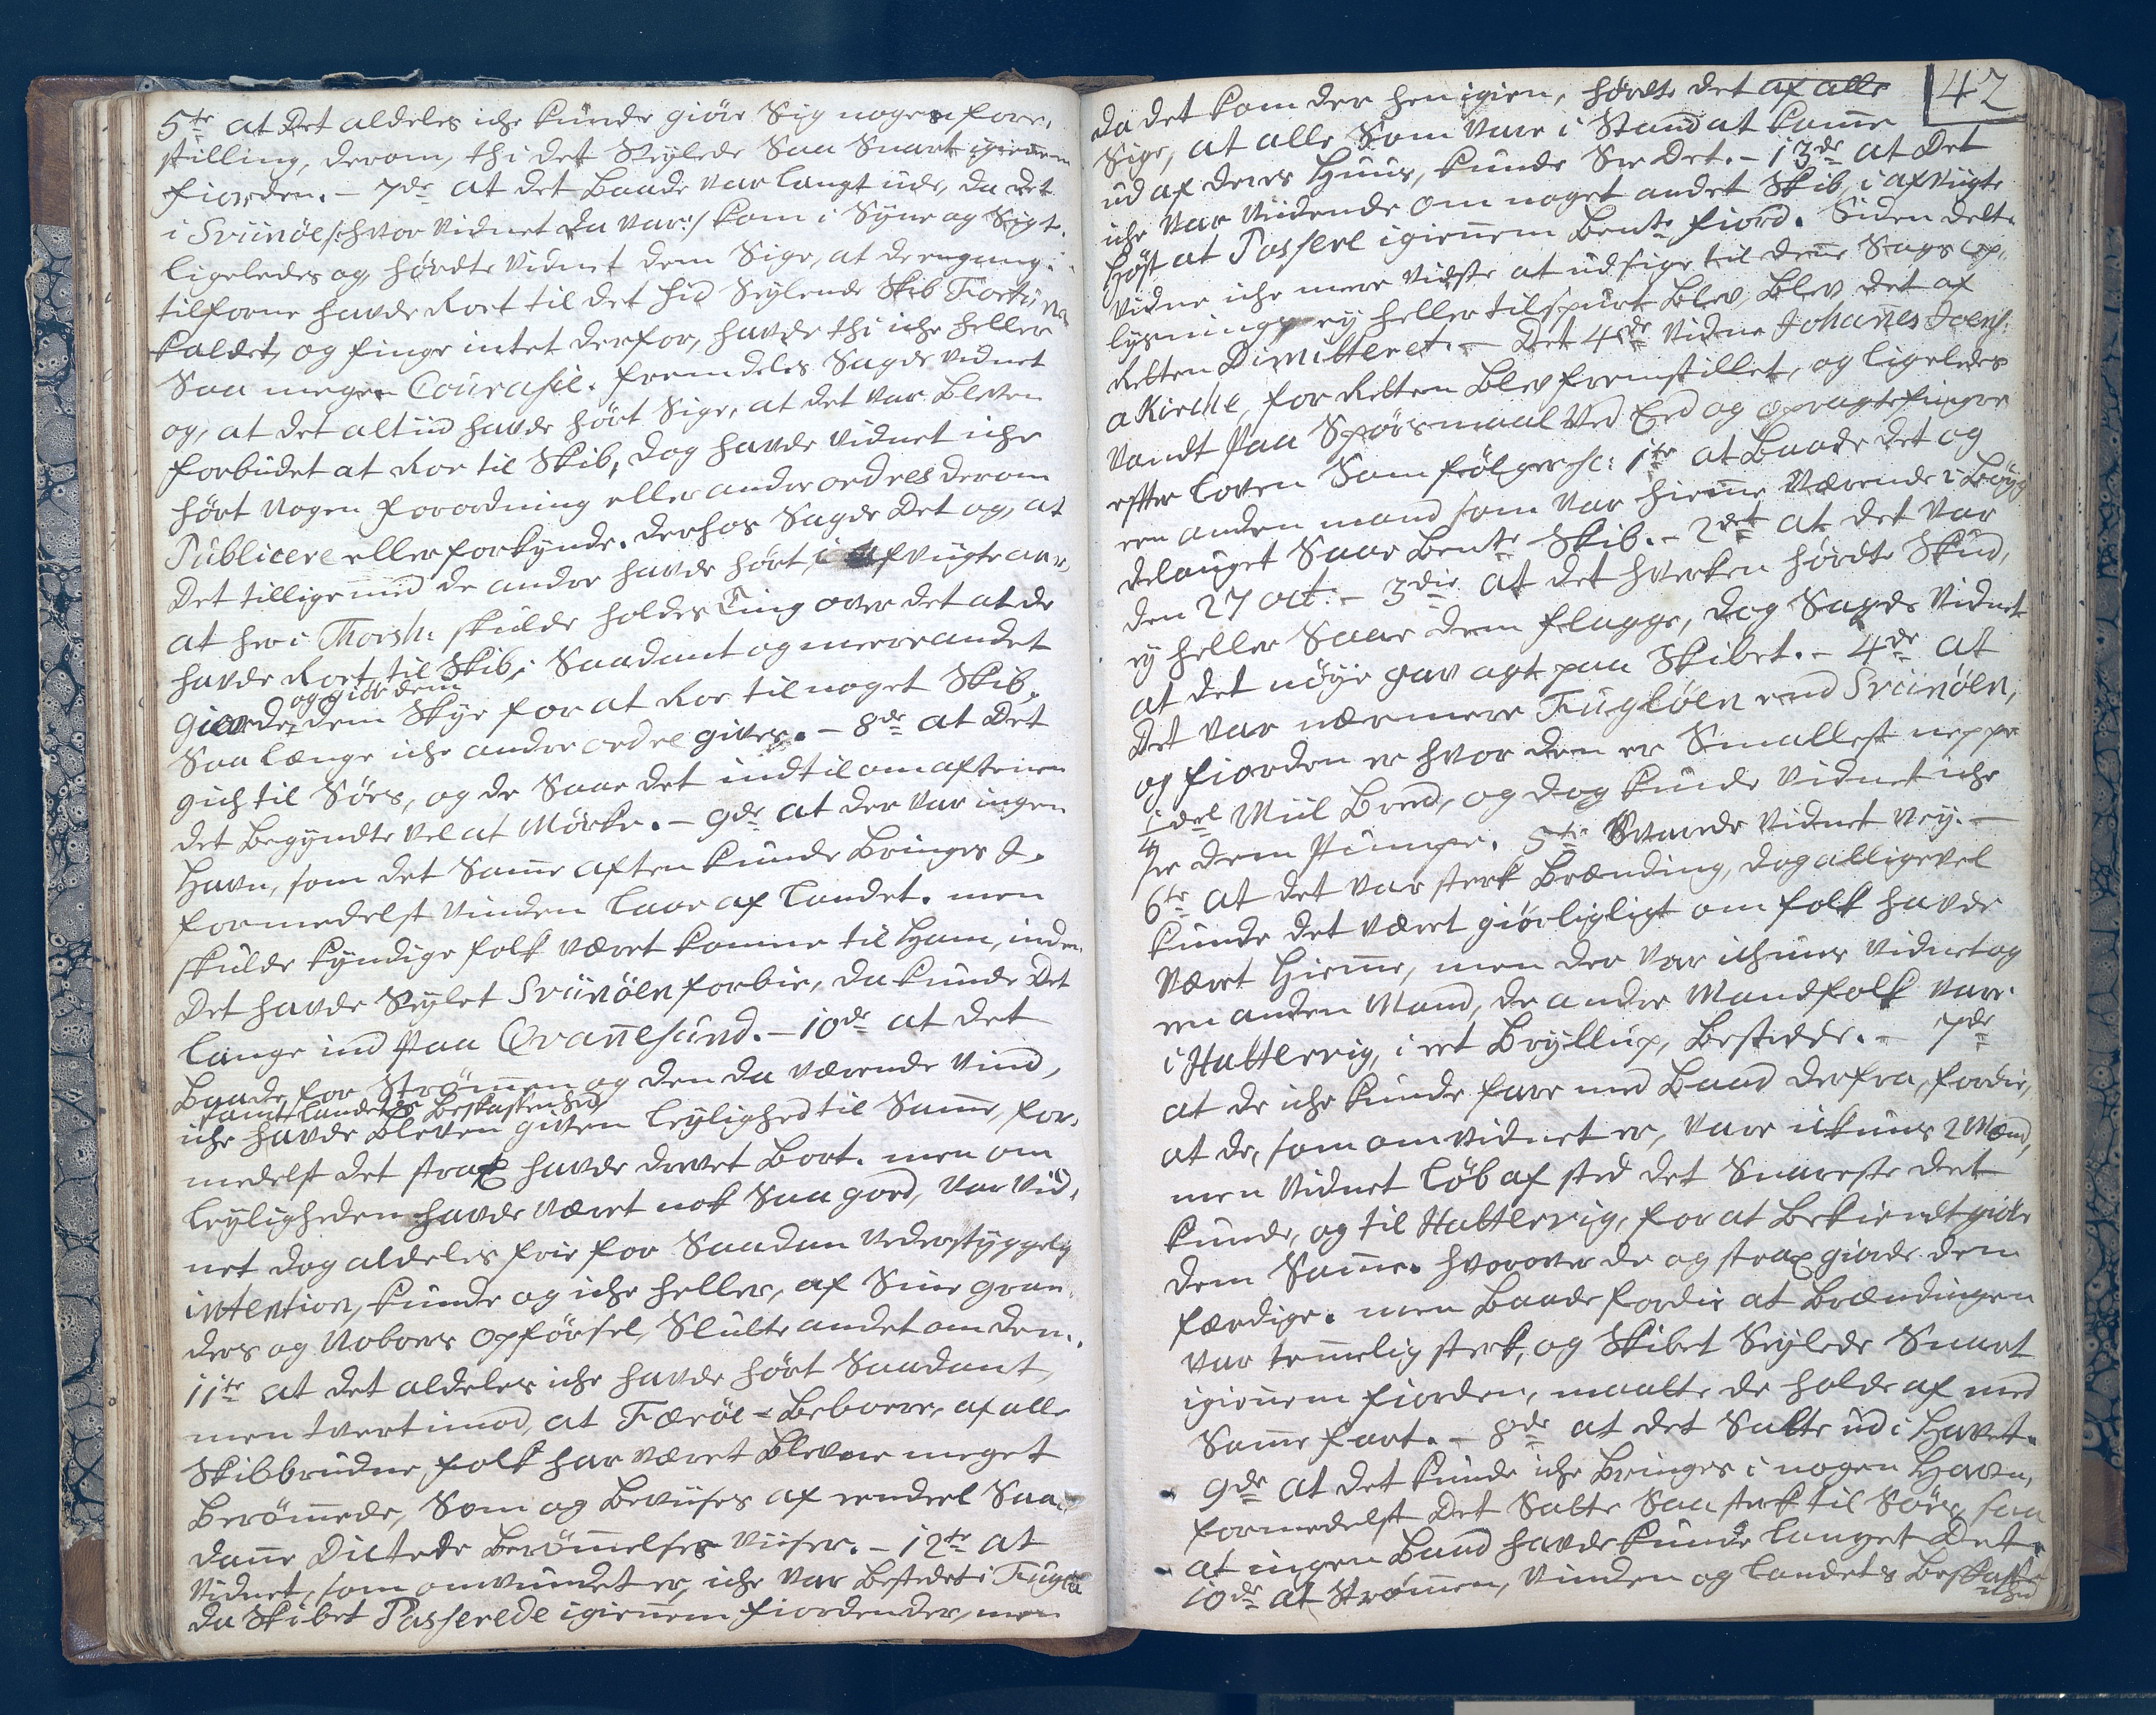 5te at det aldeles iche kunde giöre Sig nogen fore,
stilling, derom, thi det Seylede Saa Snart igiennem
fiorden. – 7de at det baade var langt ude, da det
i Sviinöe /: hvor vidnet da var :/ kom i Syne og Sigt.
ligeledes og hördte vidnet dem Sige, at de engang i
tilforne havde Roet til det hid Seylende Skib Fortuna
kaldet, og finge intet derfor, havde thi iche heller
Saa megen Courasie. fremdeles Sagde vidnet
og, at det altiid havde hört Sige, at det var bleven
forbudet at Roe til Skib, dog havde vidnet iche
hört nogen forordning eller andre ordres derom
Publicere eller forkynde. derhos Sagde det og, at
det tillige med de andre havde hört, i afvigte aar,
at her i Thorsh: skulde holdes Ting over det at de
havde Roet til Skib, Saadant og meere andet
og giör dem
giorde dem Skye for at Roe til noget Skib,
Saa længe iche andre ordre gives. – 8de at det
gich til Söes, og de Saae det indtil om aftenen
det begyndte vel at Mörke. – 9de at der var ingen
Havn, som det Samme aften kunde bringes I,
formedelst vinden laae af landet. men
skulde kyndige folk været komne til Ham, inden
det havde Seylet Sviinöen forbie, da kunde det
lange ind paa Qvannesund. – 10de at det
baade for Strömmen og den da værende vind,
samt landets beskaffenhed
iche havde bleven given leylighed til Samme, for,
medelst det strax havde drevet bort. men om
leyligheden havde været nok Saa goed, var vid,
net dog aldeles frie for Saadan vederstyggelig
intention, kunde og iche heller, af Sine Gran,
ders og Naboers opförsel, Slutte andet om dem.
11te at det aldeles iche havde hört Saadant,
men tvert imod, at Færöe-beboere, af alle
Skibbrudne folk har været blevne meget
berömmede, Som og beviises af eendeel Saa,
danne Dictede berömmelses viiser. – 12te at
vidnet, som omvundet er, iche var bestedet i Fuglöe
da Skibet Passerede igiennem fiorden der, men
42
da det kom der hen igien, hördte det af alle
Sige, at alle Som vare i Stand at komme
ud af deres Huus, kunde See det. – 13de at det
iche var viidende om noget andet Skib, i afvigte
Höst at Passere igiennem bente fiord. Siden dette
vidne iche mere vidste at udsige til denne Sags op,
lysning, ey heller tilspurt blev, blev det af
Retten Dimitteret. – Det 4de vidne Johannes Joens:
a Kirche, for Retten blev fremstillet, og ligeledes
vandt paa Spörsmaal ved Eed og opragte fingre
efter loven Som fölger sc: 1te at baade det og
een anden mand som var hiemme værende i böyg,
delauget Saae bente Skib. – 2det at det var
den 27 oct: – 3die at det hverken hördte Skud,
ey heller Saae dem flagge, dog Sagde vidnet
at det nöye gav agt paa Skibet. – 4de at
det var nærmere Fuglöen end Sviinöen,
og fiorden er hvor den er Smallest neppe
1/4 deel Miil bred, og dog kunde vidnet iche
see dem Pumpe. 5te Svarede vidnet Ney. –
6te at det var sterk brænding, dog alligevel
kunde det været giörligligt om folk havde
været hiemme, men der var ichuns vidnet og
een anden Mand, de andre Mandfolk vare
i Hattervig, i eet bryllup, bestedde. – 7de
at de iche kunde fare med baad derfra, fordie,
at de, som omvidnet er, vare ickuns 2 Mænd,
men vidnet löb af sted det Snareste det
kunde, og til Hattervig, for at bekiendtgiöre
dem Samme. hvorover de og strax giorde dem
færdige. men baade fordie at brændingen
var temmelig sterk, og Skibet Seylede Snart
igiennem fiorden, maatte de holde af med
Samme fart. – 8de at det Satte ud i Havet.
9de at det kunde iche bringes i nogen Havn,
formedelst det Satte Saa sterk til Söes, saa
at ingen baad havde kunde langet det.
10de at Strömmen, vinden og landets beskaffe
nhed